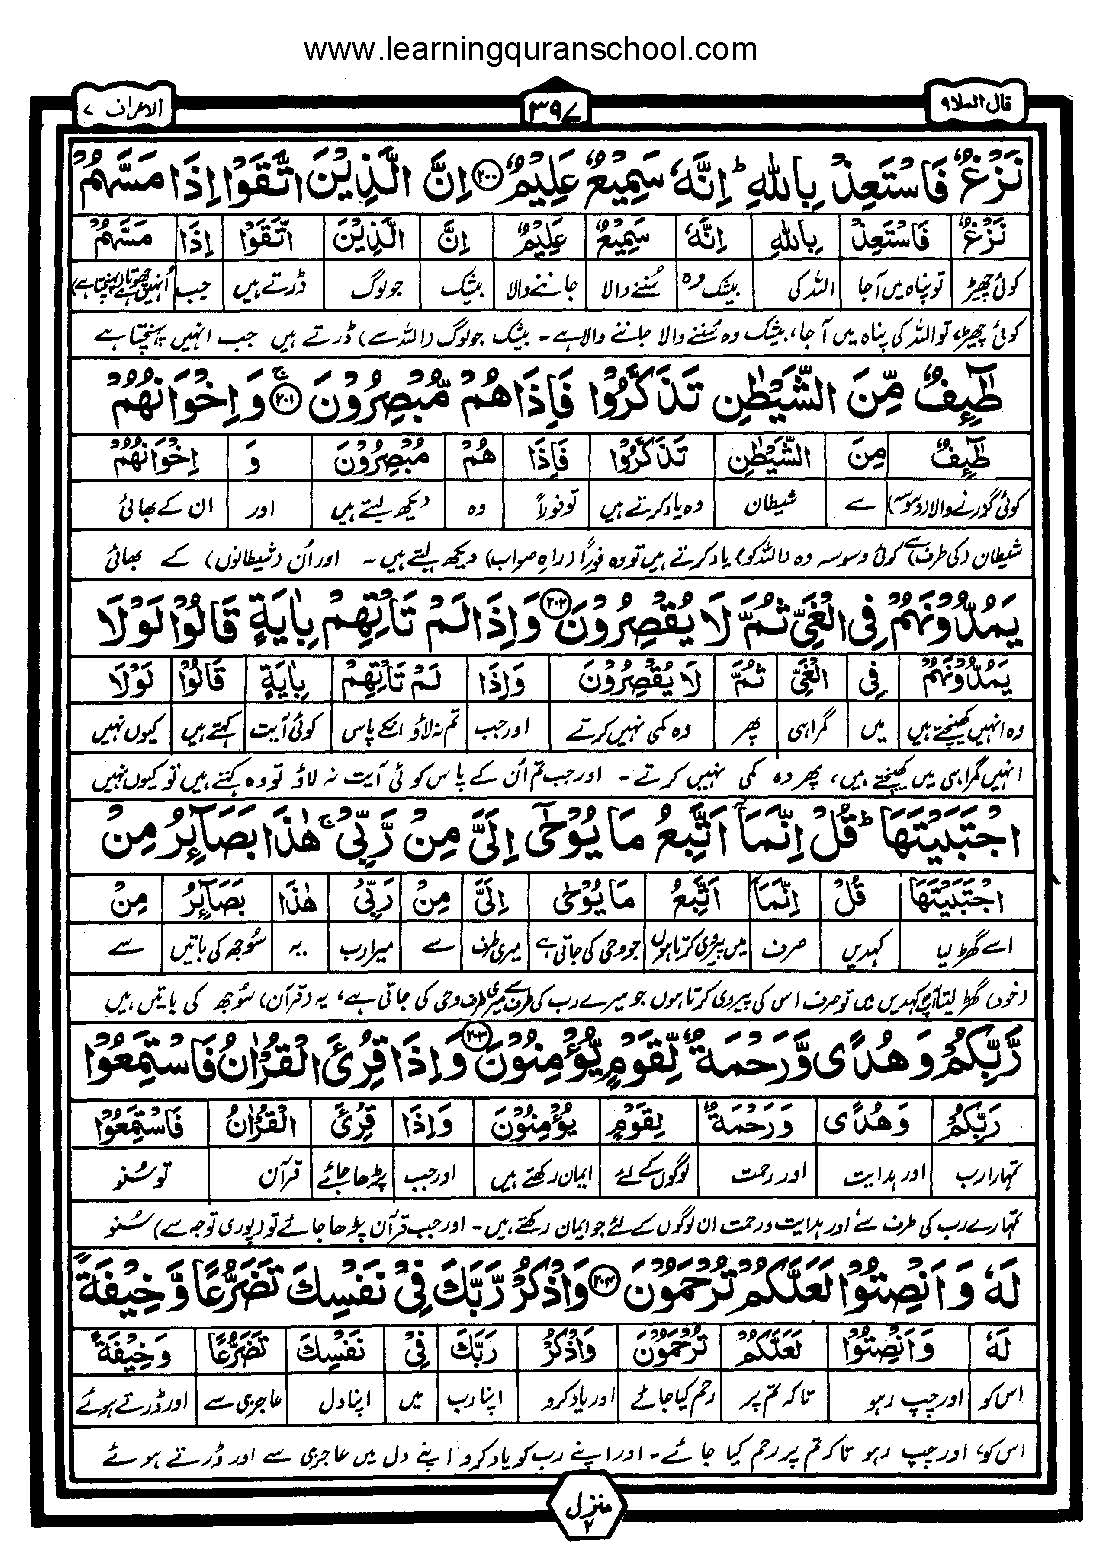 www.learningquranschool.com
قال الملا ۹
۳۹۷
الاعراف ۷
نَزْغٌ فَاسْتَعِذْ بِاللّٰهِ ؕ اِنَّهٗ سَمِیْعٌ عَلِیْمٌ ۲۰۰ اِنَّ الَّذِیْنَ اتَّقَوْا اِذَا مَسَّهُمْ
نَزْغٌ فَاسْتَعِذْ بِاللّٰهِ اِنَّهٗ سَمِیْعٌ عَلِیْمٌ اِنَّ الَّذِیْنَ اتَّقَوْا اِذَا مَسَّهُمْ
کوئی چھیڑ تو پناہ میں آجا اللہ کی بیشک وہ سُننے والا جاننے والا بیشک جو لوگ ڈرتے ہیں جب
کوئی چھیڑ، تو اللہ کی پناہ میں آجا، بیشک وہ سُننے والا جاننے والا ہے۔ بیشک جو لوگ (اللہ سے) ڈرتے ہیں جب انہیں پہنچتا ہے
طٰٓئِفٌ مِّنَ الشَّیْطٰنِ تَذَكَّرُوْا فَاِذَا هُمْ مُّبْصِرُوْنَ ۚ ۲۰۱ وَ اِخْوَانُهُمْ
طٰٓئِفٌ مِنَ الشَّیْطٰنِ تَذَكَّرُوْا فَاِذَا هُمْ مُبْصِرُوْنَ وَ اِخْوَانُهُمْ
کوئی گزرنے والا (وسوسہ) سے شیطان وہ یاد کرتے ہیں تو فوراً وہ دیکھ لیتے ہیں اور ان کے بھائی
شیطان (کی طرف) سے کوئی وسوسہ وہ (اللہ کو) یاد کرتے ہیں تو وہ فوراً (راہِ صواب) دیکھ لیتے ہیں۔ اور اُن (شیطانوں) کے بھائی
یَمُدُّوْنَهُمْ فِی الْغَیِّ ثُمَّ لَا یُقْصِرُوْنَ ۲۰۲ وَ اِذَا لَمْ تَاْتِهِمْ بِاٰیَةٍ قَالُوْا لَوْ لَا
یَمُدُّوْنَهُمْ فِی الْغَیِّ ثُمَّ لَا یُقْصِرُوْنَ وَاِذَا لَمْ تَاْتِهِمْ بِاٰیَةٍ قَالُوْا لَوْلَا
وہ انہیں کھینچتے ہیں میں گمراہی پھر وہ کمی نہیں کرتے اور جب تم نہ لاؤ انکے پاس کوئی آیت کہتے ہیں کیوں نہیں
انہیں گمراہی میں کھینچتے ہیں، پھر وہ کمی نہیں کرتے۔ اور جب تم اُن کے پاس کوئی آیت نہ لاؤ تو وہ کہتے ہیں تو کیوں نہیں
اجْتَبَیْتَهَا ؕ قُلْ اِنَّمَاۤ اَتَّبِعُ مَا یُوْحٰۤی اِلَیَّ مِنْ رَّبِّیْ ۚ هٰذَا بَصَآئِرُ مِنْ
اجْتَبَیْتَهَا قُلْ اِنَّمَاۤ اَتَّبِعُ مَا یُوْحٰۤی اِلَیَّ مِنْ رَبِّیْ هٰذَا بَصَآئِرُ مِنْ
اسے گھڑ لیا کہدیں صرف میں پیروی کرتا ہوں جو وحی کی جاتی ہے میری طرف سے میرا رب یہ سُوجھ کی باتیں سے
(خود) گھڑ لیتا آپ کہدیں میں تو صرف اس کی پیروی کرتا ہوں جو میرے رب کی طرف سے میری طرف وحی کی جاتی ہے، یہ (قرآن) سُوجھ کی باتیں ہیں
رَّبِّكُمْ وَ هُدًی وَّ رَحْمَةٌ لِّقَوْمٍ یُّؤْمِنُوْنَ ۲۰۳ وَ اِذَا قُرِئَ الْقُرْاٰنُ فَاسْتَمِعُوْا
رَبِّكُمْ وَهُدًی وَرَحْمَةٌ لِقَوْمٍ یُؤْمِنُوْنَ وَاِذَا قُرِئَ الْقُرْاٰنُ فَاسْتَمِعُوْا
تمہارا رب اور ہدایت اور رحمت لوگوں کے لئے ایمان رکھتے ہیں اور جب پڑھا جائے قرآن تو سُنو
تمہارے رب کی طرف سے اور ہدایت و رحمت ان لوگوں کے لئے جو ایمان رکھتے ہیں۔ اور جب قرآن پڑھا جائے تو (پوری توجہ سے) سُنو
لَهٗ وَ اَنْصِتُوْا لَعَلَّكُمْ تُرْحَمُوْنَ ۲۰۴ وَ اذْكُرْ رَّبَّكَ فِیْ نَفْسِكَ تَضَرُّعًا وَّ خِیْفَةً
لَهٗ وَاَنْصِتُوْا لَعَلَّكُمْ تُرْحَمُوْنَ وَاذْكُرْ رَبَّكَ فِیْ نَفْسِكَ تَضَرُّعًا وَخِیْفَةً
اس کو اور چپ رہو تاکہ تم پر رحم کیا جائے اور یاد کرو اپنا رب میں اپنا دل عاجزی سے اور ڈرتے ہوئے
اس کو، اور چپ رہو تاکہ تم پر رحم کیا جائے۔ اور اپنے رب کو یاد کرو اپنے دل میں عاجزی سے اور ڈرتے ہوئے
منزل ۲